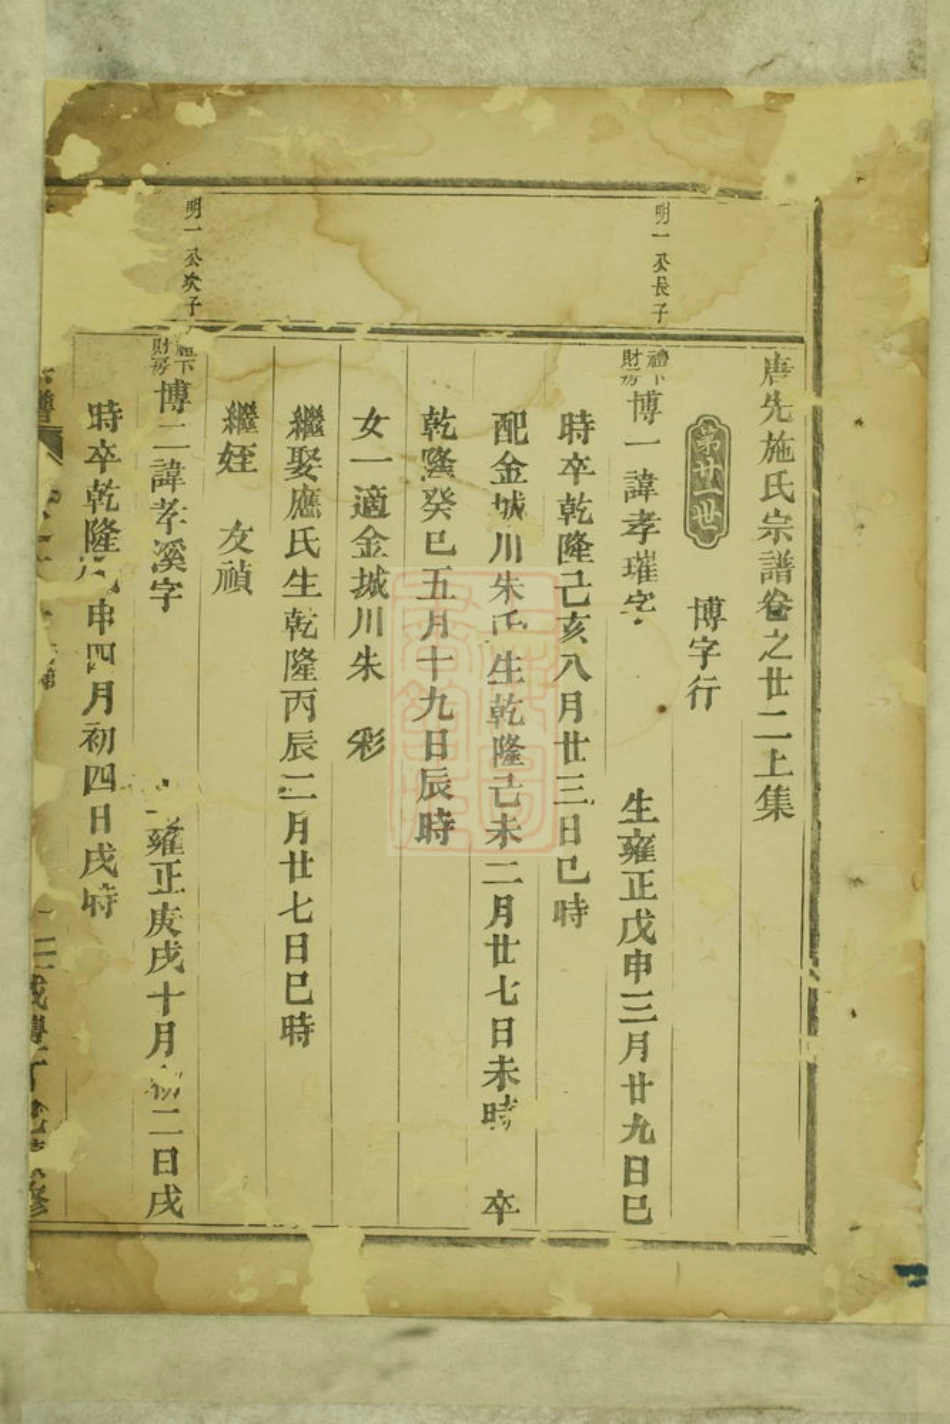 唐先施氏宗譜卷之廿二上集
第廿一世
博字行
明一公長子
禮下財房
博一諱孝㻽字 生雍正戊申三月廿九日巳
時卒乾隆己亥八月廿三日巳時
配金城川朱氏生乾隆己未二月廿七日未時 卒
乾隆癸巳五月十九日辰時
女一適金城川朱 彩
繼娶應氏生乾隆丙辰二月廿七日巳時
繼姪 友禎
明一公次子
禮下財房
博二諱孝溪字 雍正庚戌十月初二日戌
時卒乾隆申四月初四日戌時